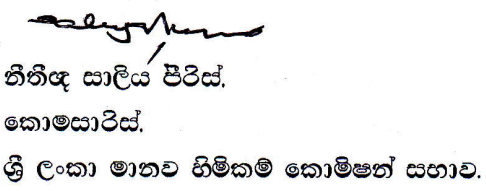 නීතීඥ සාලිය පීරිස්,
කොමසාරිස්,
ශ්‍රී ලංකා මානව හිමිකම් කොමිෂන් සභාව.